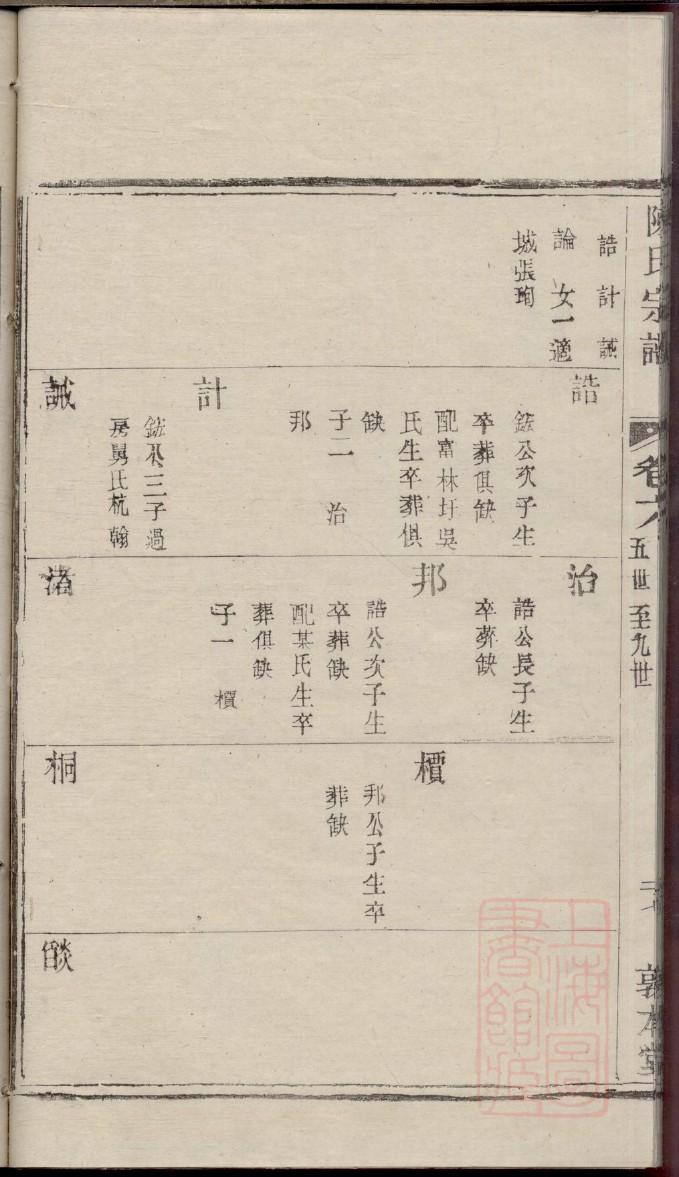 陳氏宗譜
卷六
五世至九世
敦本堂
誥 計 誠
論 女一適
城張珣
誥
鋐公次子生
卒葬俱缺
配富林圩吳
氏生卒葬俱
缺
子二 治
邦
計
鋐公三子過
房舅氏杭翰
誠
治
誥公長子生
卒葬缺
邦
誥公次子生
卒葬缺
配某氏生卒
葬俱缺
子一 檟
渚
檟
邦公子生卒
葬缺
桐
上海圖書館藏